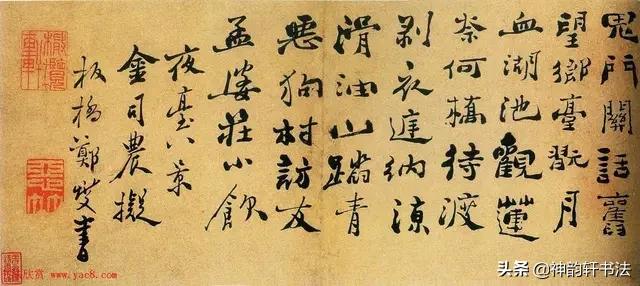 鬼門關話舊
望鄉臺翫月
血湖池觀蓮
柰何橋待渡
剥衣庭納凉
滑油山踏青
惡狗村訪友
孟婆莊小飲
夜臺八景
金司農擬
板橋鄭燮書
欣赏
www.yac8.com
头条 @神韵轩书法